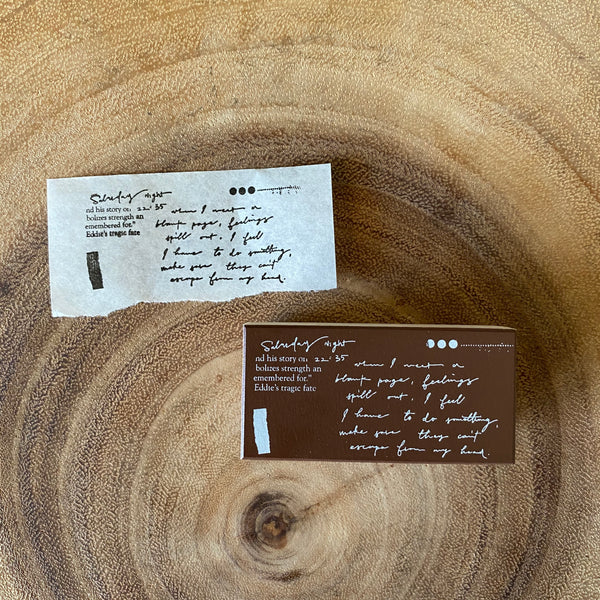 Saturday night
nd his story on 22:35
bolizes strength an
emembered for."
Eddie's tragic fate
when I meet a
blank page, feelings
spill out. I feel
I have to do something,
make sure they can't
escape from my head.
Saturday night
nd his story on 22:35
bolizes strength an
emembered for."
Eddie's tragic fate
when I meet a
blank page, feelings
spill out. I feel
I have to do something,
make sure they can't
escape from my head.